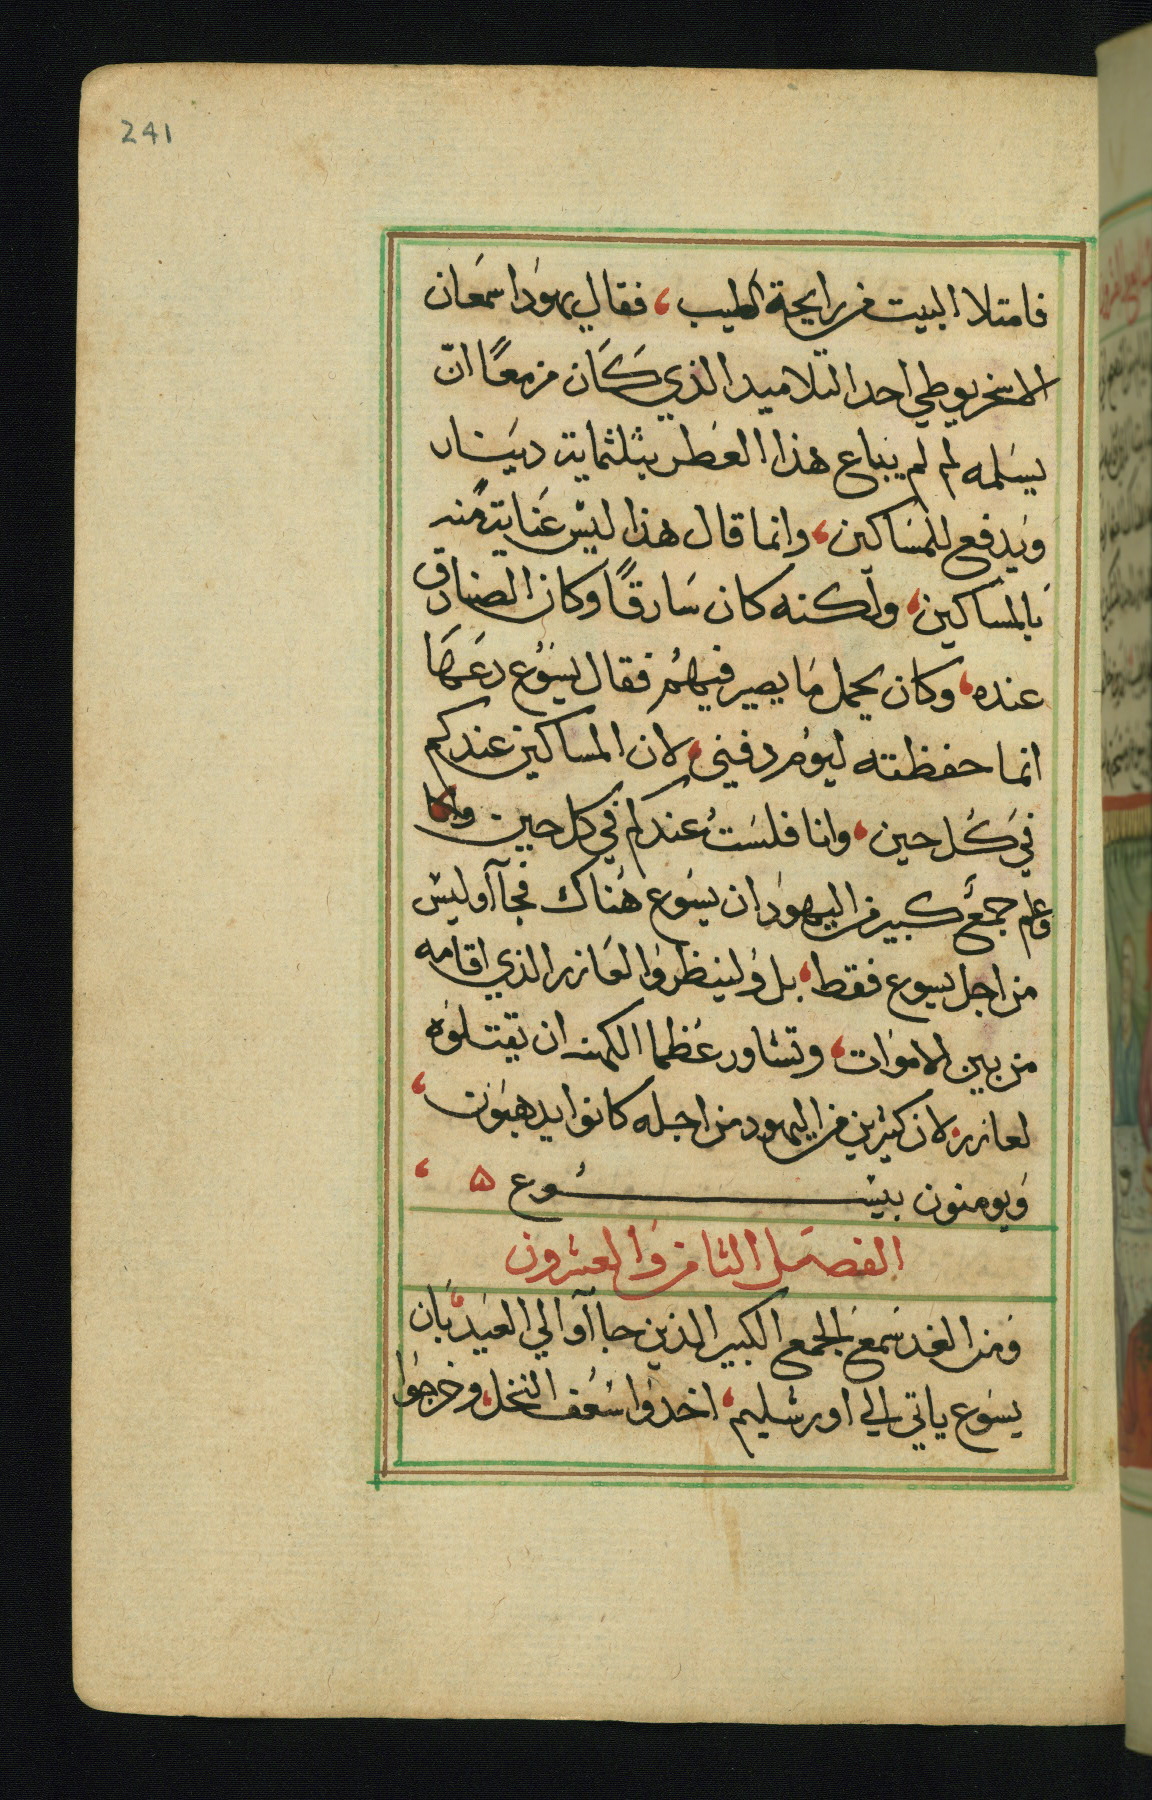 241
فامتلا البيت من رايحة الطيب، فقال يهودا سمعان
الاسخريوطي احد التلاميد الذي كان مزمعًا انّ
يسلمه لم لم يباع هذا العطر بثلثماية دينار
ويدفع للمساكين، وانما قال هذا ليس عناية منه
بالمساكين، ولكنه كان سارقًا وكان الصنادق
عنده، وكان يحمل ما يصير فيهم فقال يسوع دعها
انما حفظته ليوم دفني، لان المساكين عندكم
في كل حين، وانا فلست عندكم في كل حين
وعلم جمع كبير من اليهود ان يسوع هناك فجآآو ليس
من اجل يسوع فقط، بل ولينظروا لعازر الذي اقامه
من بين الاموات، وتشاور عظما الكهنه ان يقتلوه
لعازر، لان كثيرين من اليهود من اجله كانوا يدهبون،
ويومنون بيسوع ۵ ،
الفصل الثامن والعشرون
ومن الغد سمع الجمع الكبير الذين جاآوا الي العيد بان
يسوع ياتي الي اورشليم، اخدوا سعف النخل، وخرجوا